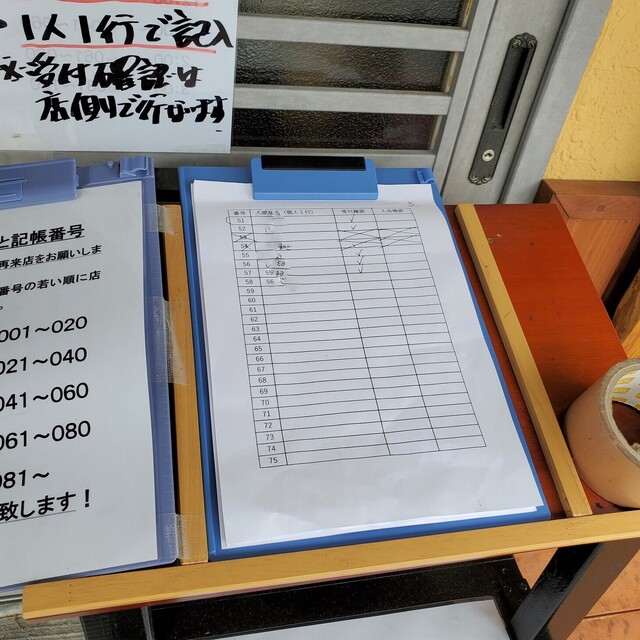 1人1行で記入
受付確認は
店側で行います
と記帳番号
再来店をお願いしま
番号の若い順に店
001～020
021～040
041～060
061～080
081～
致します！
番号 入場者名（個人1行） 受付確認 入店確認
51
52
53
54
55
56
57 55
58 56
59
60
61
62
63
64
65
66
67
68
69
70
71
72
73
74
75